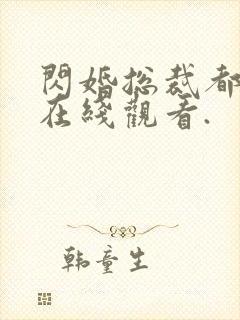 閃婚总裁都
在綫觀看.
韩童生